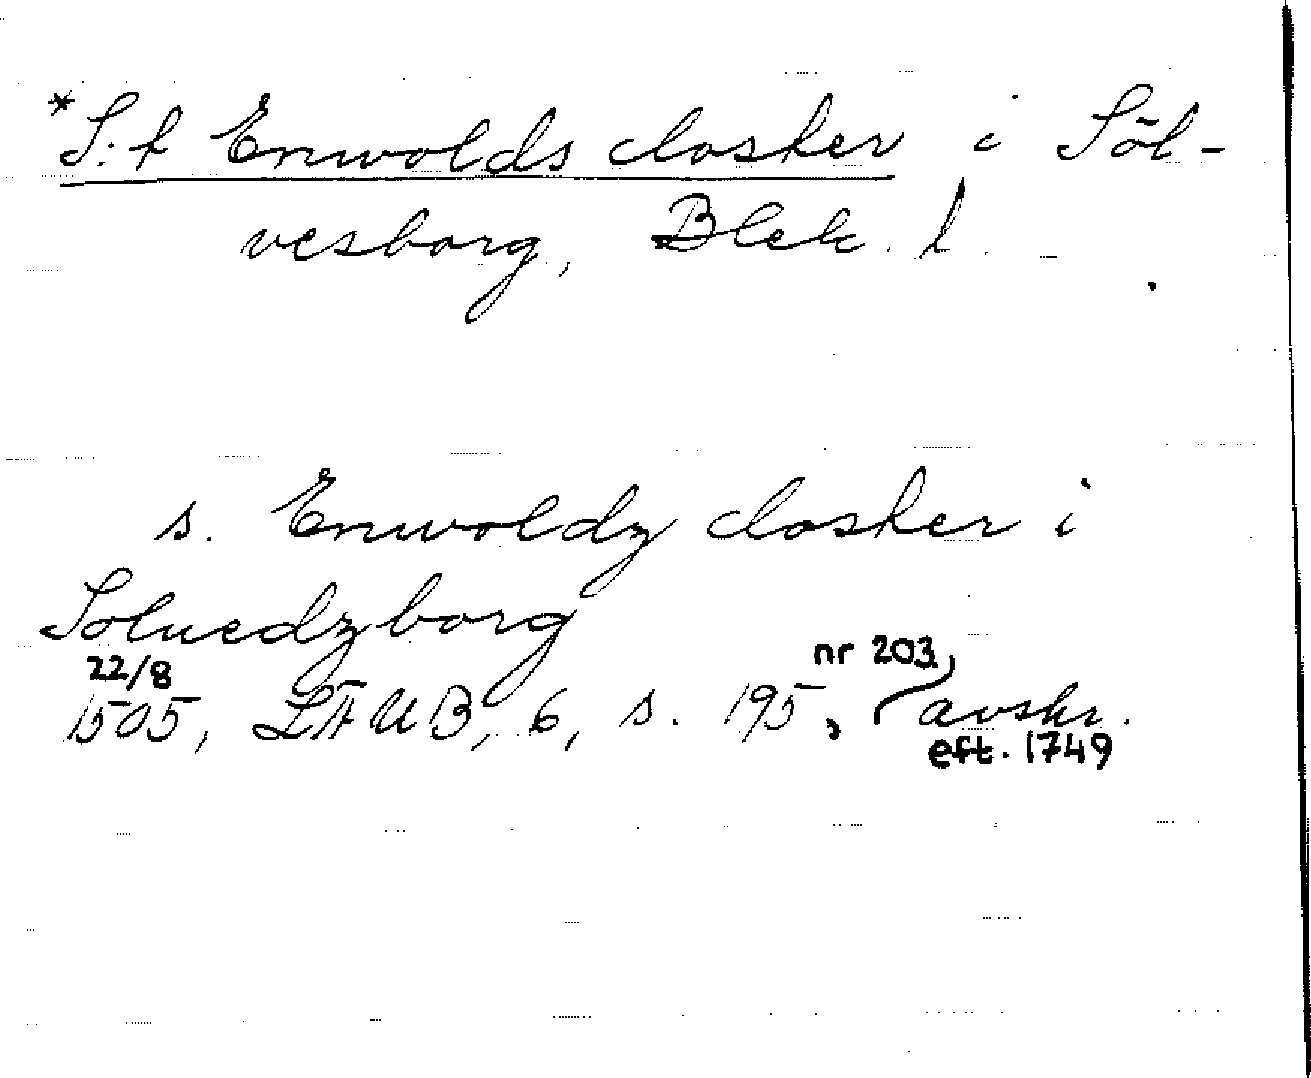 *S:t Enwolds closter i Söl-
vesborg, Blek. l.
s. Enwoldz closter i
Soluedzborg
22/8 nr 203,
1505, LÆUB, 6, s. 195, avskr.
eft. 1749